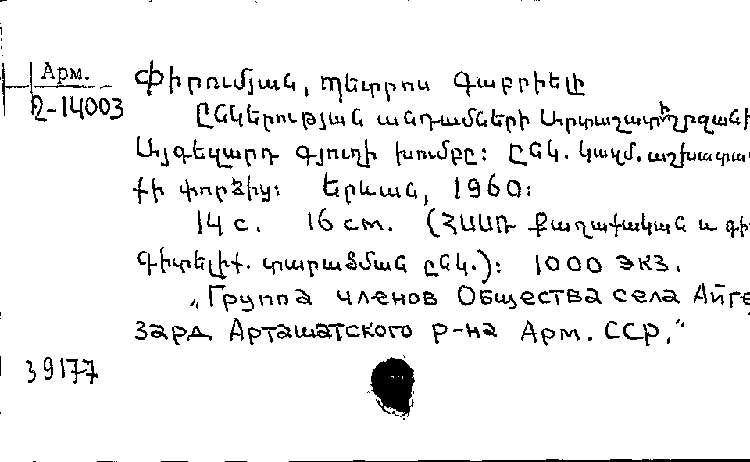 Арм.
Զ-14003
Փիրումյան, Պետրոս Գաբրիելի
Ընկերության անդամների Արտաշատի շրջանի
Այգեզարդ գյուղի խումբը: Ընկ. կազմ. աշխատան
քի փորձից: Երևան, 1960:
14 с. 16 см. (ՀՍՍՌ Քաղաքական և գի
Գիտելիք. տարածման ընկ.): 1000 экз.
„Группа членов Общества села Айге
зард Арташатского р-на Арм. ССР.“
39177